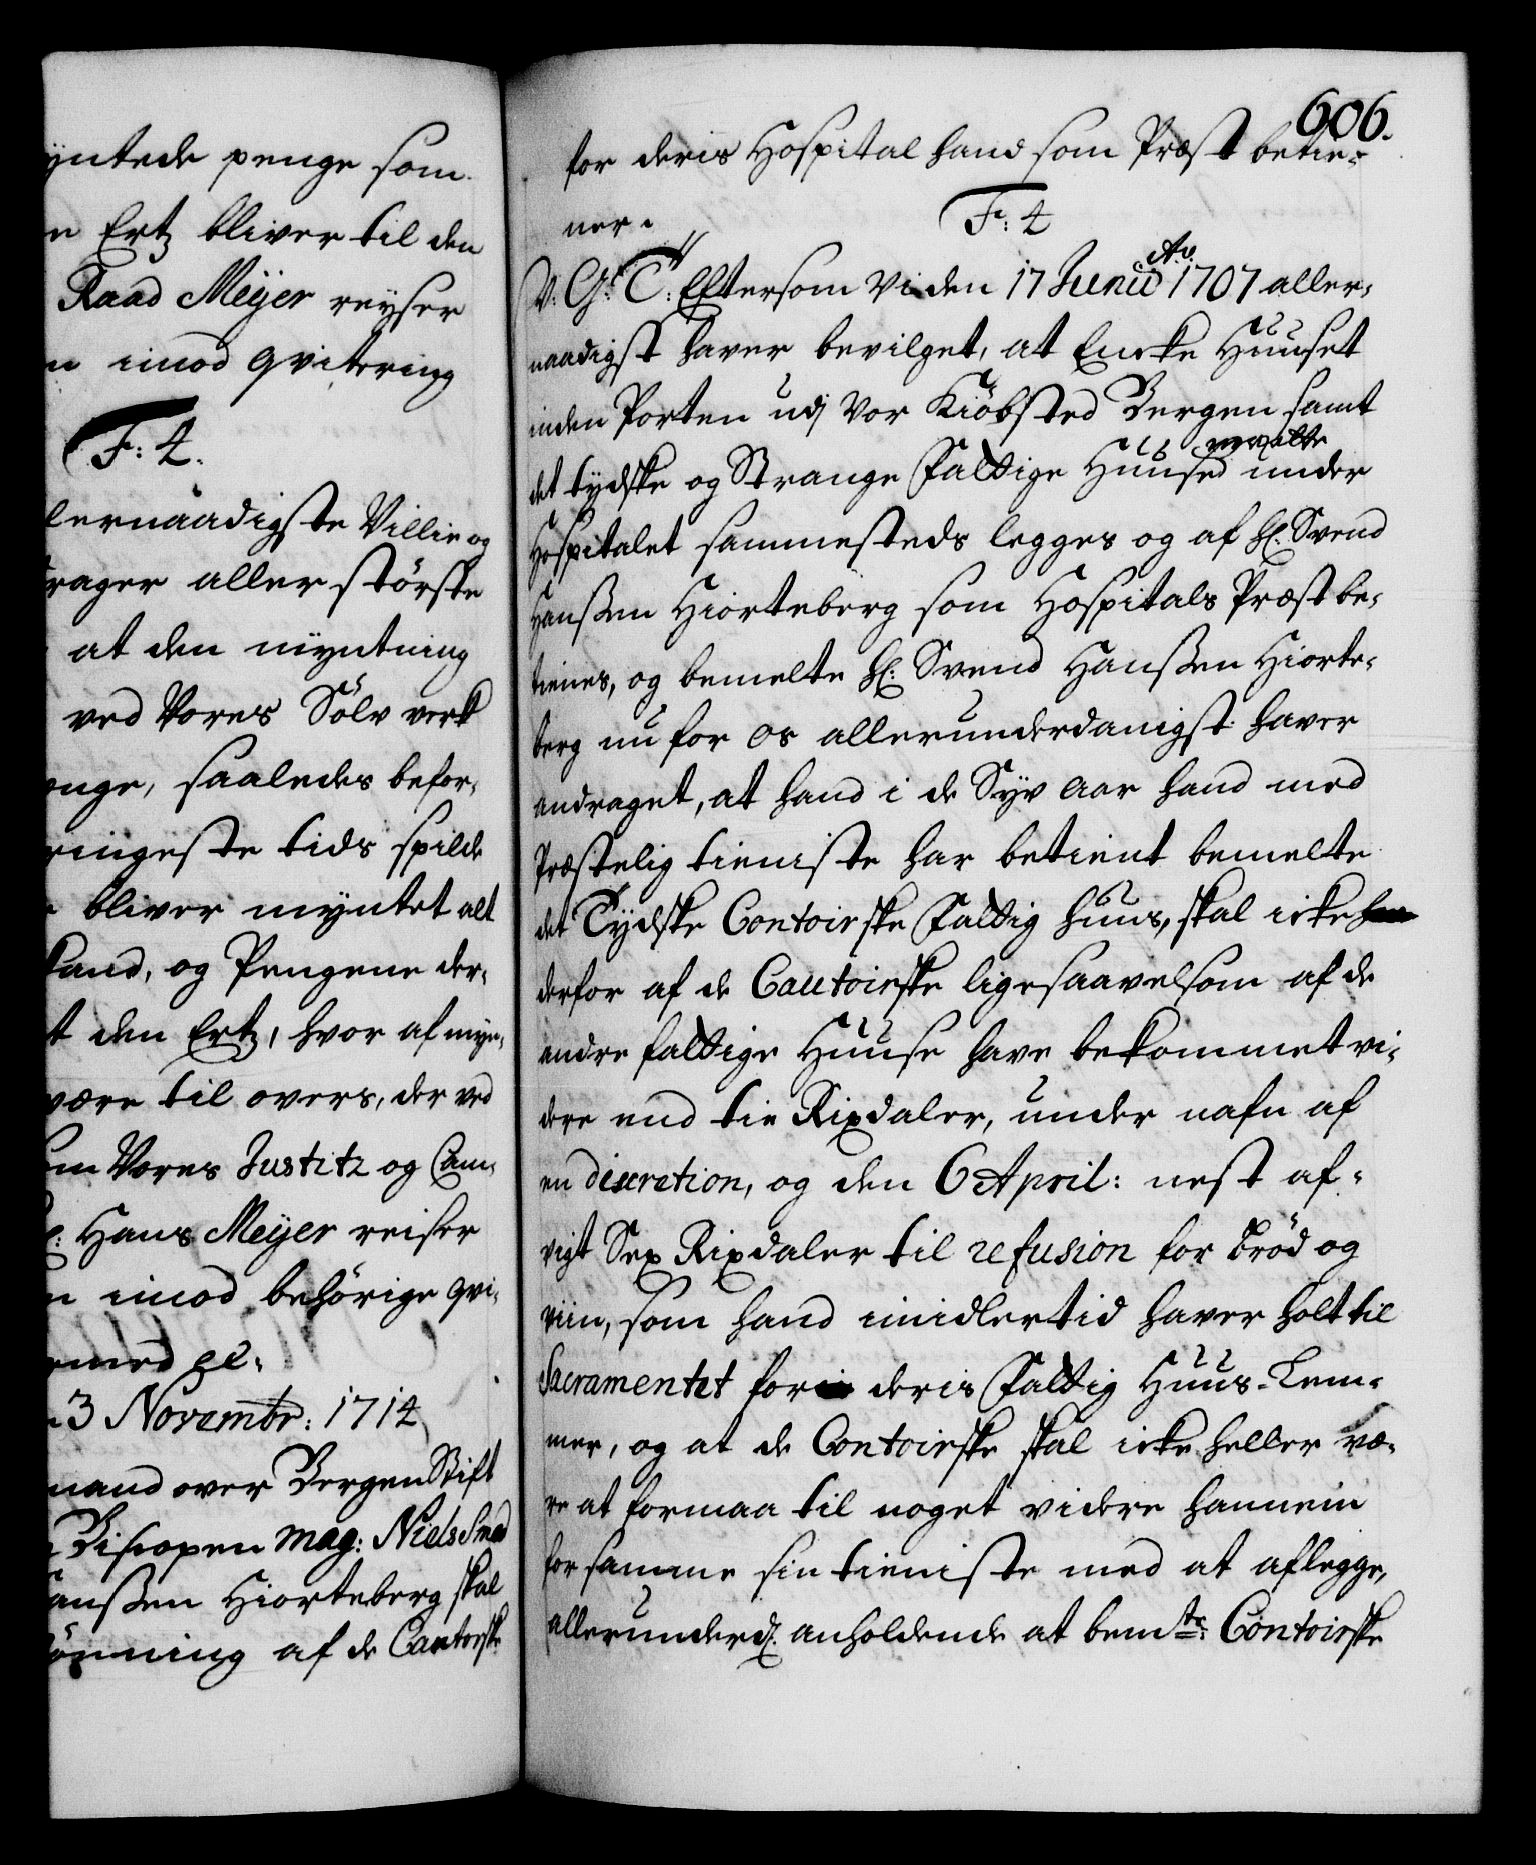 yntede penge som
n Ertz bliver til den
Raad Meÿer reyser
n imod qvitering
F: 4.
lernaadigste Villie og
rager aller størske
at den myntning
ved Vores Sølv verk
enge, saaledes befor,
ringeste tids spilde
bliver myntet alt
kand, og Pengene der,
t den Ertz, hvor af myn,
være til overs, der ved
om Vores Justitz og Cam,
Hans Meÿer reiser
n imod behørige qvi,
3 Novembr: 1714
mand over Bergen Stift
Biscopen Mag: Niels Smed
anßen Hiorteberg skal
lønning af de Cantorske
606.
for deris Hospital hand som Præst betie,
ner.
F: 4
V: G: T: Eftersom Vi den 17 Junii Ao. 1707 aller,
naadigst haver bevilget, at Encke Huuset
inden Porten udj Vor Kiöbsted Bergen samt
det tydske og Strange Fattige Huused under
Hospitalet sammesteds legges og af hr. Svend
Hanßen Hiorteberg som Hospitals Præst be,
tienes, og bemelte hr: Svend Hanßen Hiorte,
berg nu for os allerunderdanigst haver
andraget, at hand i de Syv Aar hand med
Præstelig tieniste har betient bemelte
det Tydske Contoirske Fattig huus, skal icke
derfor af de Cautoirske ligesaavelsom af de
andre fattige Huuse have bekommet vi,
dere end tie Rixdaler, under nafn af
en discretion, og den 6 April: nest af,
vigt Sex Rixdaler til refusion for brød og
viin, som hand imidlertid haver holt til
Sacramentet for deris Fattig Huus-Lem,
mer, og at de Contoirske skal icke heller væ,
re at formaa til noget videre hannem
for samme sin tieniste med at aflegge,
allerunderd. anholdende at bemte: Contoirske